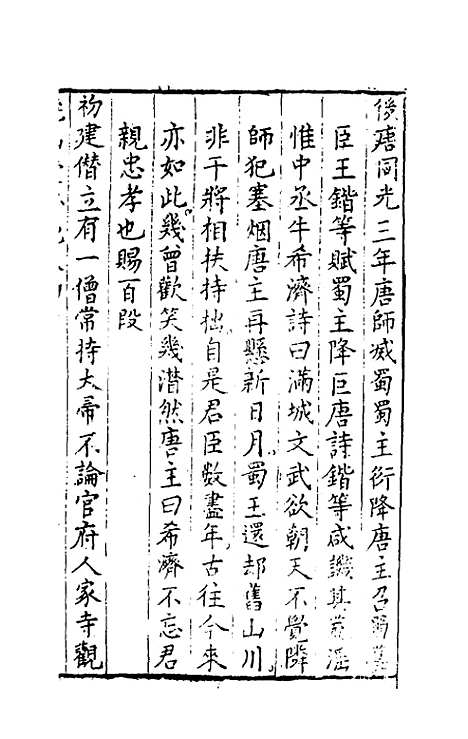 後唐同光三年唐師滅蜀蜀主衍降唐主召蜀
臣王鍇等賦蜀主降臣唐詩鍇等咸譏其荒淫
惟中丞牛希濟詩曰滿城文武欲朝天不覺隣
師犯塞烟唐主再懸新日月蜀王還却舊山川
非干將相扶持拙自是君臣數盡年古往今來
亦如此幾曾歡笑幾潸然唐主曰希濟不忘君
親忠孝也賜百段
初建僭立有一僧常持大帚不論官府人家寺觀